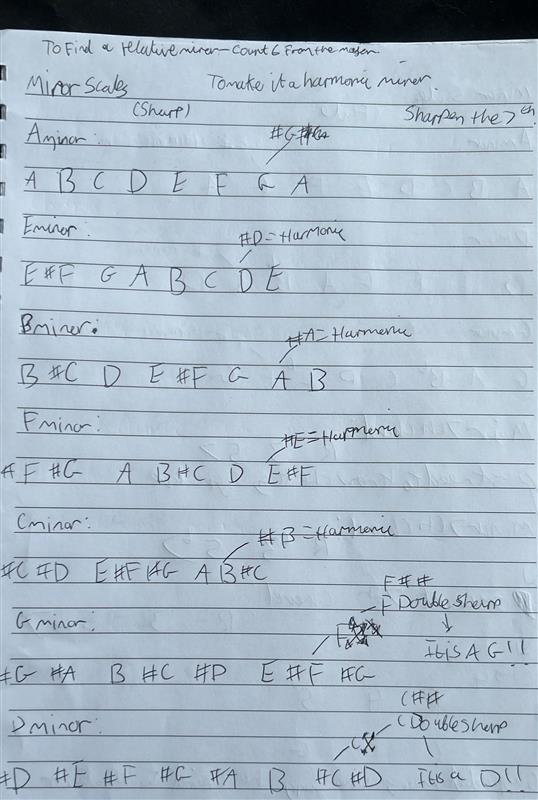 To Find a relative minor - Count 6 From the major
Minor Scales To make it a harmonic minor.
(Sharp) Sharpen the 7th
A minor: #G
A B C D E F G A
E minor: #D = Harmonic
E #F G A B C D E
B minor: #A = Harmonic
B #C D E #F G A B
F minor: #E = Harmonic
#F #G A B #C D E #F
C minor: #B = Harmonic
#C #D E #F #G A B #C
F##
G minor: F Double sharp !!
It is A G!!
#G #A B #C #D E #F #G
C##
D minor: C Double sharp
#D #E #F #G #A B #C #D It is a D!!